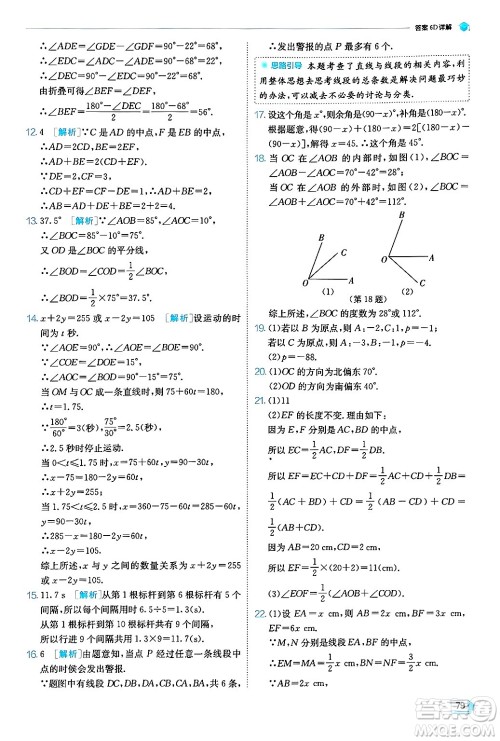 答案6D详解
∴∠ADE=∠GDE=90°-22°=68°.
∴∠GDF=68°-22°=46°.
∴∠BEG=180°-∠DEC-∠BEF=
∴∠BEF=(180°-∠DEC)/2=(180°-68°)/2=56°.
12. 4 [解析]∵C是AD的中点,F是EB的中点,
∴AD=2CD,BE=2EF.
∵AD+DE+BE=AB=11,
∴2CD+DE+2EF=11.
∵DE=3,
∴CD+EF=4.
13. 37.5° [解析]∵∠AOB=85°,∠AOC=10°,
∴∠BOC=85°-10°=75°.
又OD是∠BOC的平分线,
∴∠BOD=∠COD=1/2∠BOC,
∴∠BOD=1/2×75°=37.5°.
14. x+2y=255或x-2y=105 [解析]设运动的时间为t秒.
∵∠AOE=90°,∠AOB=15°,
∴∠BOE=90°-15°=75°.
∵∠COF=90°,∠DOE=∠DOF=60°,
∴∠COD=90°-60°=30°.
当OM与OC成一直线时,15+60t=90+30,
∴t=1.75.
∵180°/60°=3(秒),75°/30°=2.5(秒),
∴2.5秒时停止运动.
当0<t≤1.75时,x=75+60t,y=90-30t,
∴x+2y=255.
当1.75<t≤2.5时,x=360-(75+60t),y=90-30t
=285-60t
∴x-2y=105.
综上所述,x与y之间的数量关系为x+2y=255或x-2y=105.
15. 11.7 s [解析]从第1根标杆到第6根标杆有5个间隔,所以行进1个间隔的时间为6.5÷5=1.3(s).
从第1根标杆到第10根标杆共有9个间隔,
所以行进9个间隔共用1.3×9=11.7(s).
16. 6 [解析]由题意知,当点P经过任意一条线段中点的时候会发出警报.
∵题图中共有线段3+2+1=6(条),
∴发出警报的点P最多有6个.
思路引导 本题考查了直线与线段的相关内容,利用整体思想去思考线段的总条数是解决问题最巧妙的办法,可以减去不必要的讨论与分类.
17. 设这个角是x°,则余角是(90-x)°,补角是(180-x)°.
根据题意,得(90-x)+(180-x)=2[(180-x)-(90-x)],解得x=45.
18. 当OC在∠AOB的内部时,如图(1),∠BOC=∠AOB-∠AOC=70°-42°=28°;
当OC在∠AOB的外部时,如图(2),∠BOC=∠AOB+∠AOC=70°+42°=112°.
B
C
O
A
(1)
B
A
O
C
(2)
(第18题)
综上所述,∠BOC的度数为28°或112°.
19. (1)若以B为原点,则A:-2,C:1,p=-1;
若以C为原点,则A:-3,B:-1,p=-4.
(2)p=-88.
20. (1)OC的方向为北偏东70°.
(2)OD的方向为南偏东40°.
21. (1)11
(2)EF的长度不变.理由如下:
因为E是AC的中点,F是BD的中点,
所以EC=1/2AC,DF=1/2DB.
所以EF=EC+CD+DF=1/2AC+CD+1/2DB
=1/2(AC+BD)+CD=1/2(AB-CD)+CD=
1/2(AB+CD).
因为AB=20 cm,CD=2 cm,
所以EF=1/2×(20+2)=11(cm).
(3)∠EOF=1/2(∠AOB+∠COD).
22. (1)设EA=x cm,则AB=2x cm,BF=3x cm.
∵M,N分别是线段EA,BF的中点,
∴EM=MA=1/2EA=1/2x cm,
79